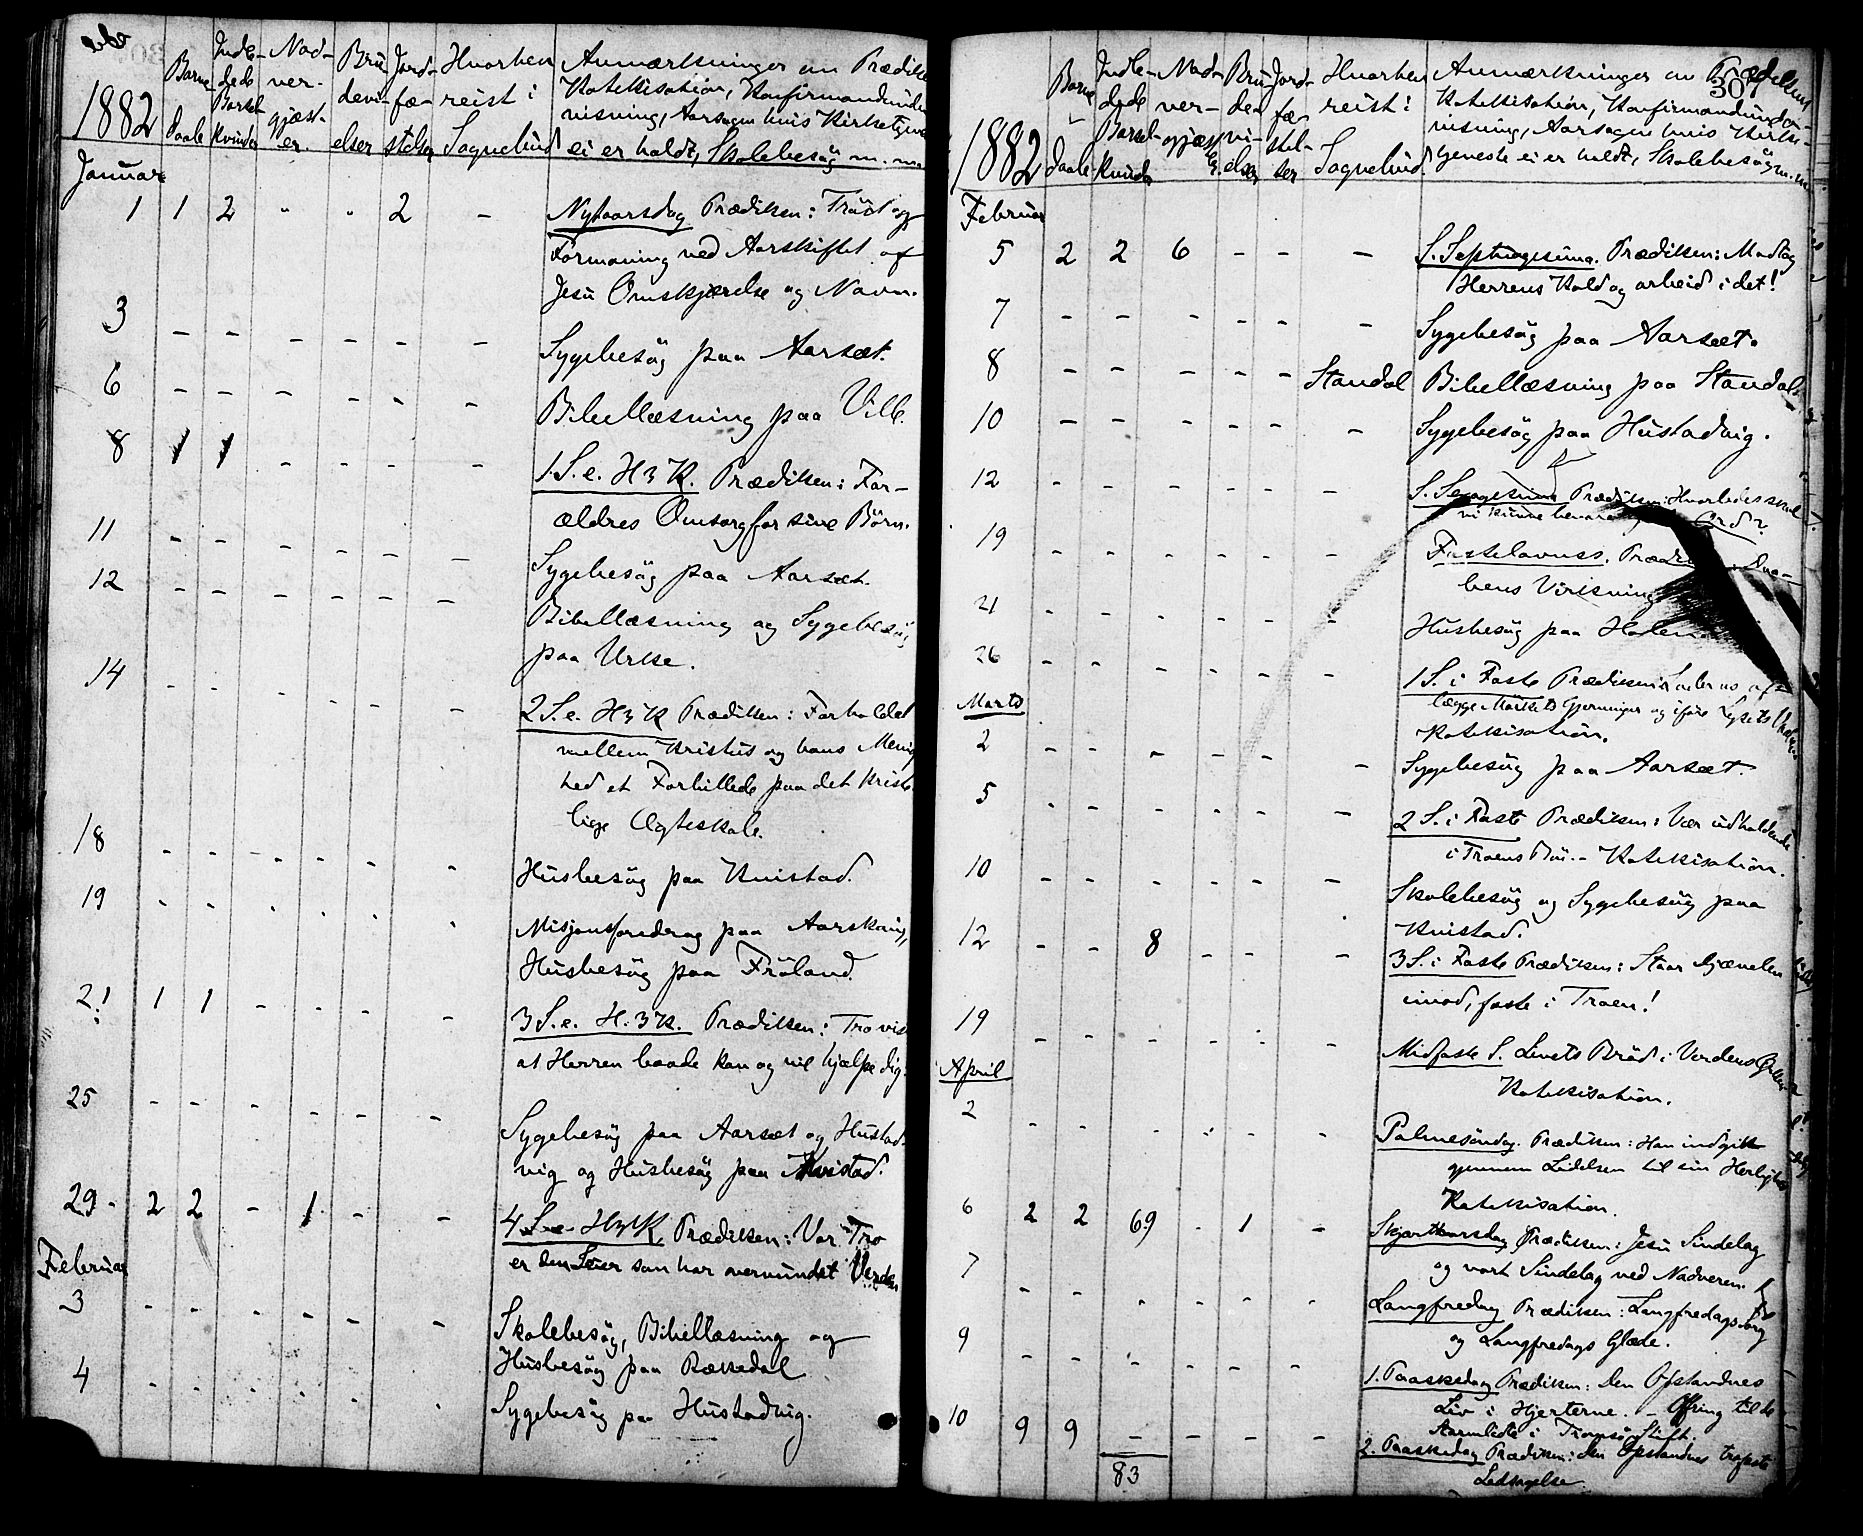 1882
Barne
daab
Indle-
dede
Barsel
kvinder
Nad-
ver-
gjæst-
er.
Bru-
devi-
elser
Jord-
fæ-
stelser
Hvorhen
reist i
Sognebud
Anmærkninger om Prædiken
Katekisation, Konfirmandunder
visning, Aarsagen hvis Kirketjene
ei er holdt, Skolebesøg m. m.
Januar
1 1 2 " " 2 - Nytaarsdag Prædiken: Trøst og
Formaning ved Aarskiftet af
Jesu Omskjærelse og Navn.
3 - - - - - - Sygebesøg paa Aarsæt.
6 - - - - - - Bibellæsning paa Ville.
8 1 1 - - - - 1. S. e. H3K. Prædiken: For-
ældres Omsorg for sine Børn.
11 - - - - - - Sygebesøg paa Aarsæt.
12 - - - - - - Bibellæsning og Sygebesøg
paa Urke.
14 - - - - - - 2 S. e. H3K Prædiken: Forholdet
mellem Kristus og hans Menig
hed et Forbillede paa det kriste
lige Ægteskab.
18 - - - - - - Husbesøg paa Kvistad.
19 - - - - - - Misjonsforedrag paa Aarskoug,
Husbesøg paa Frøland.
2! 1 1 - - - - 3 S. e. H.3K. Prædiken: Tro vis
at Herren baade kan og vil hjælpe dig.
25 - - - - - - Sygebesøg paa Aarsæt og Hustad-
vig og Husbesøg paa Kvistad.
29 2 2 - 1 - - 4 S. e. H3K Prædiken: Vor Tro
er den Seier som har overvundet Verden
Februar
3 - - - - - - Skolebesøg, Bibellæsning og
Husbesøg paa Bækkedal
4 - - - - - - Sygebesøg paa Hustadvig.
307
1882
Barne
daab
Indle-
dede
Barsel-
kvinder
Nad-
ver-
gjæst
er.
Bru-
de-
vi-
elser
Jord-
fæ-
stel-
ser
Hvorhen
reist i
Sognebud.
Anmærkninger om Prædiken
Katekisation, Konfirmandunder-
visning, Aarsagen hvis Kirke-
tjeneste ei er holdt, Skolebesøg m. m.
Februar
5 2 2 6 - - - S. Septuagesima. Prædiken: Modtag
Herrens Kald og arbeid i det!
7 - - - - - - Sygebesøg paa Aarsæt.
8 - - - - - Standal Bibellæsning paa Standal.
10 - - - - - - Sygebesøg paa Hustadvig.
12 - - - - - - S. Sexagesima Prædiken: Hvorledes skal
vi kunne bevare Ord?
19 - - - - - - Fastelavnss. Prædiken: Daa-
bens Virkning
21 - - - - - - Husbesøg paa
26 - - - - - - 1 S. i Faste Prædiken: Lader os af-
lægge Mørkets Gjerninger og iføre Lysets Vaaben
Katekisation.
Marts
2 - - - - - - Sygebesøg paa Aarsæt.
5 - - - - - - 2 S. i Faste Prædiken: Vær udholdende
i Troens Bøn. - Katekisation.
10 - - - - - - Skolebesøg og Sygebesøg paa
Kvistad.
12 - - 8 - - - 3 S. i Faste Prædiken: Staar Djævelen
imod, faste i Troen!
19 - - - - - - Midfaste S. Livets Brød i Verdens Ørken
Katekisation.
April
2 - - - - - - Palmesøndag. Prædiken: Han indgik
gjennem Lidelsen til sin Herlighed
Katekisation.
6 2 2 69 - 1 - Skjærthorsdag Prædiken: Jesu Sindelag
og vort Sindelag ved Nadveren.
7 - - - - - - Langfredag Prædiken: Langfredags Sorg
og Langfredags Glæde.
9 - - - - - - 1. Paaskedag Prædiken: Den Opstandnes
Liv i Hjerterne. - Ofring til de
i Tromsø Stift.
10 9 9 - - - - 2. Paaskedag Prædiken: Den Opstandnes trofaste
Ledsagelse.
83